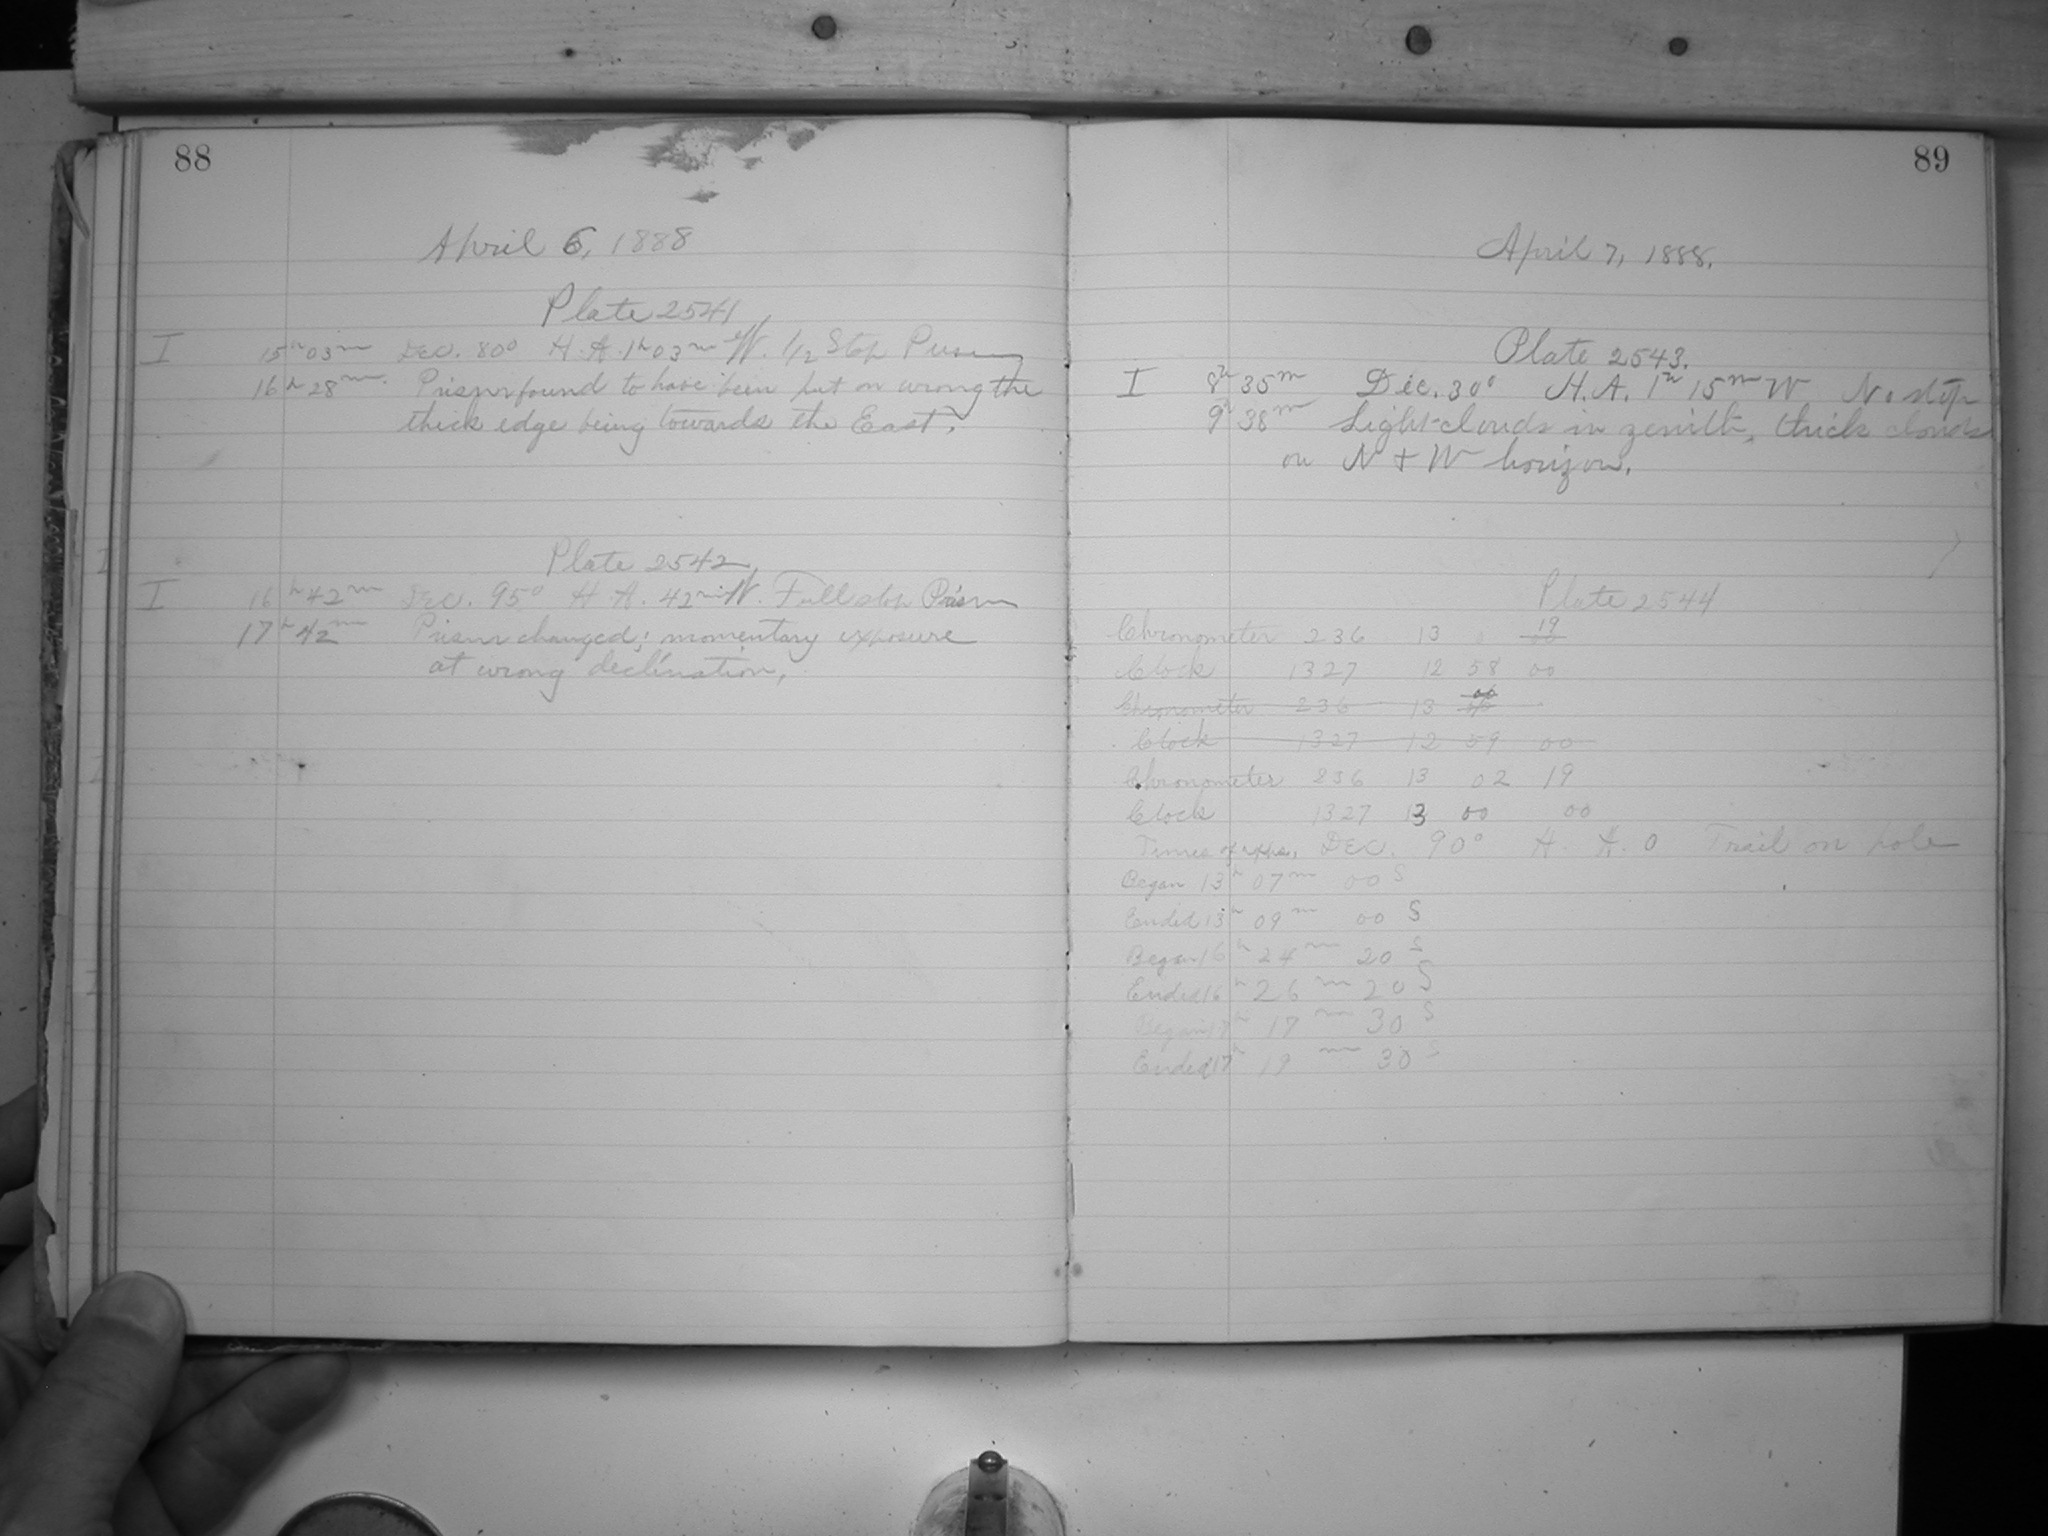 88
April 6, 1888
Plate 2541
I 15h 03m Dec. 80° H. A. 1h 03m W. 1/2 Stop Prism
16h 28m. Prism found to have been put on wrong the
thick edge being towards the East.
Plate 2542
I 16h 42m Dec. 95° H. A. 42m W. Full stop Prism
17h 42m Prism changed; momentary exposure
at wrong declination,
89
April 7, 1888.
Plate 2543.
I 8h 35m Dec. 30° H.A. 1h 15m W No stop
9h 38m Light clouds in zenith, thick clouds
on N + W horizon.
Plate 2544
Chronometer 236 13 0 19
Clock 1327 12 58 00
Chronometer 236 13
Clock 1327 12 59 00
Chronometer 236 13 02 19
Clock 1327 13 00 00
Times of exps. Dec. 90° H. A. 0 Trail on pole
Began 13h 07m 00s
Ended 13h 09m 00s
Began 16h 24m 20s
Ended 16h 26m 20s
Began 17h 17m 30s
Ended 17h 19m 30s